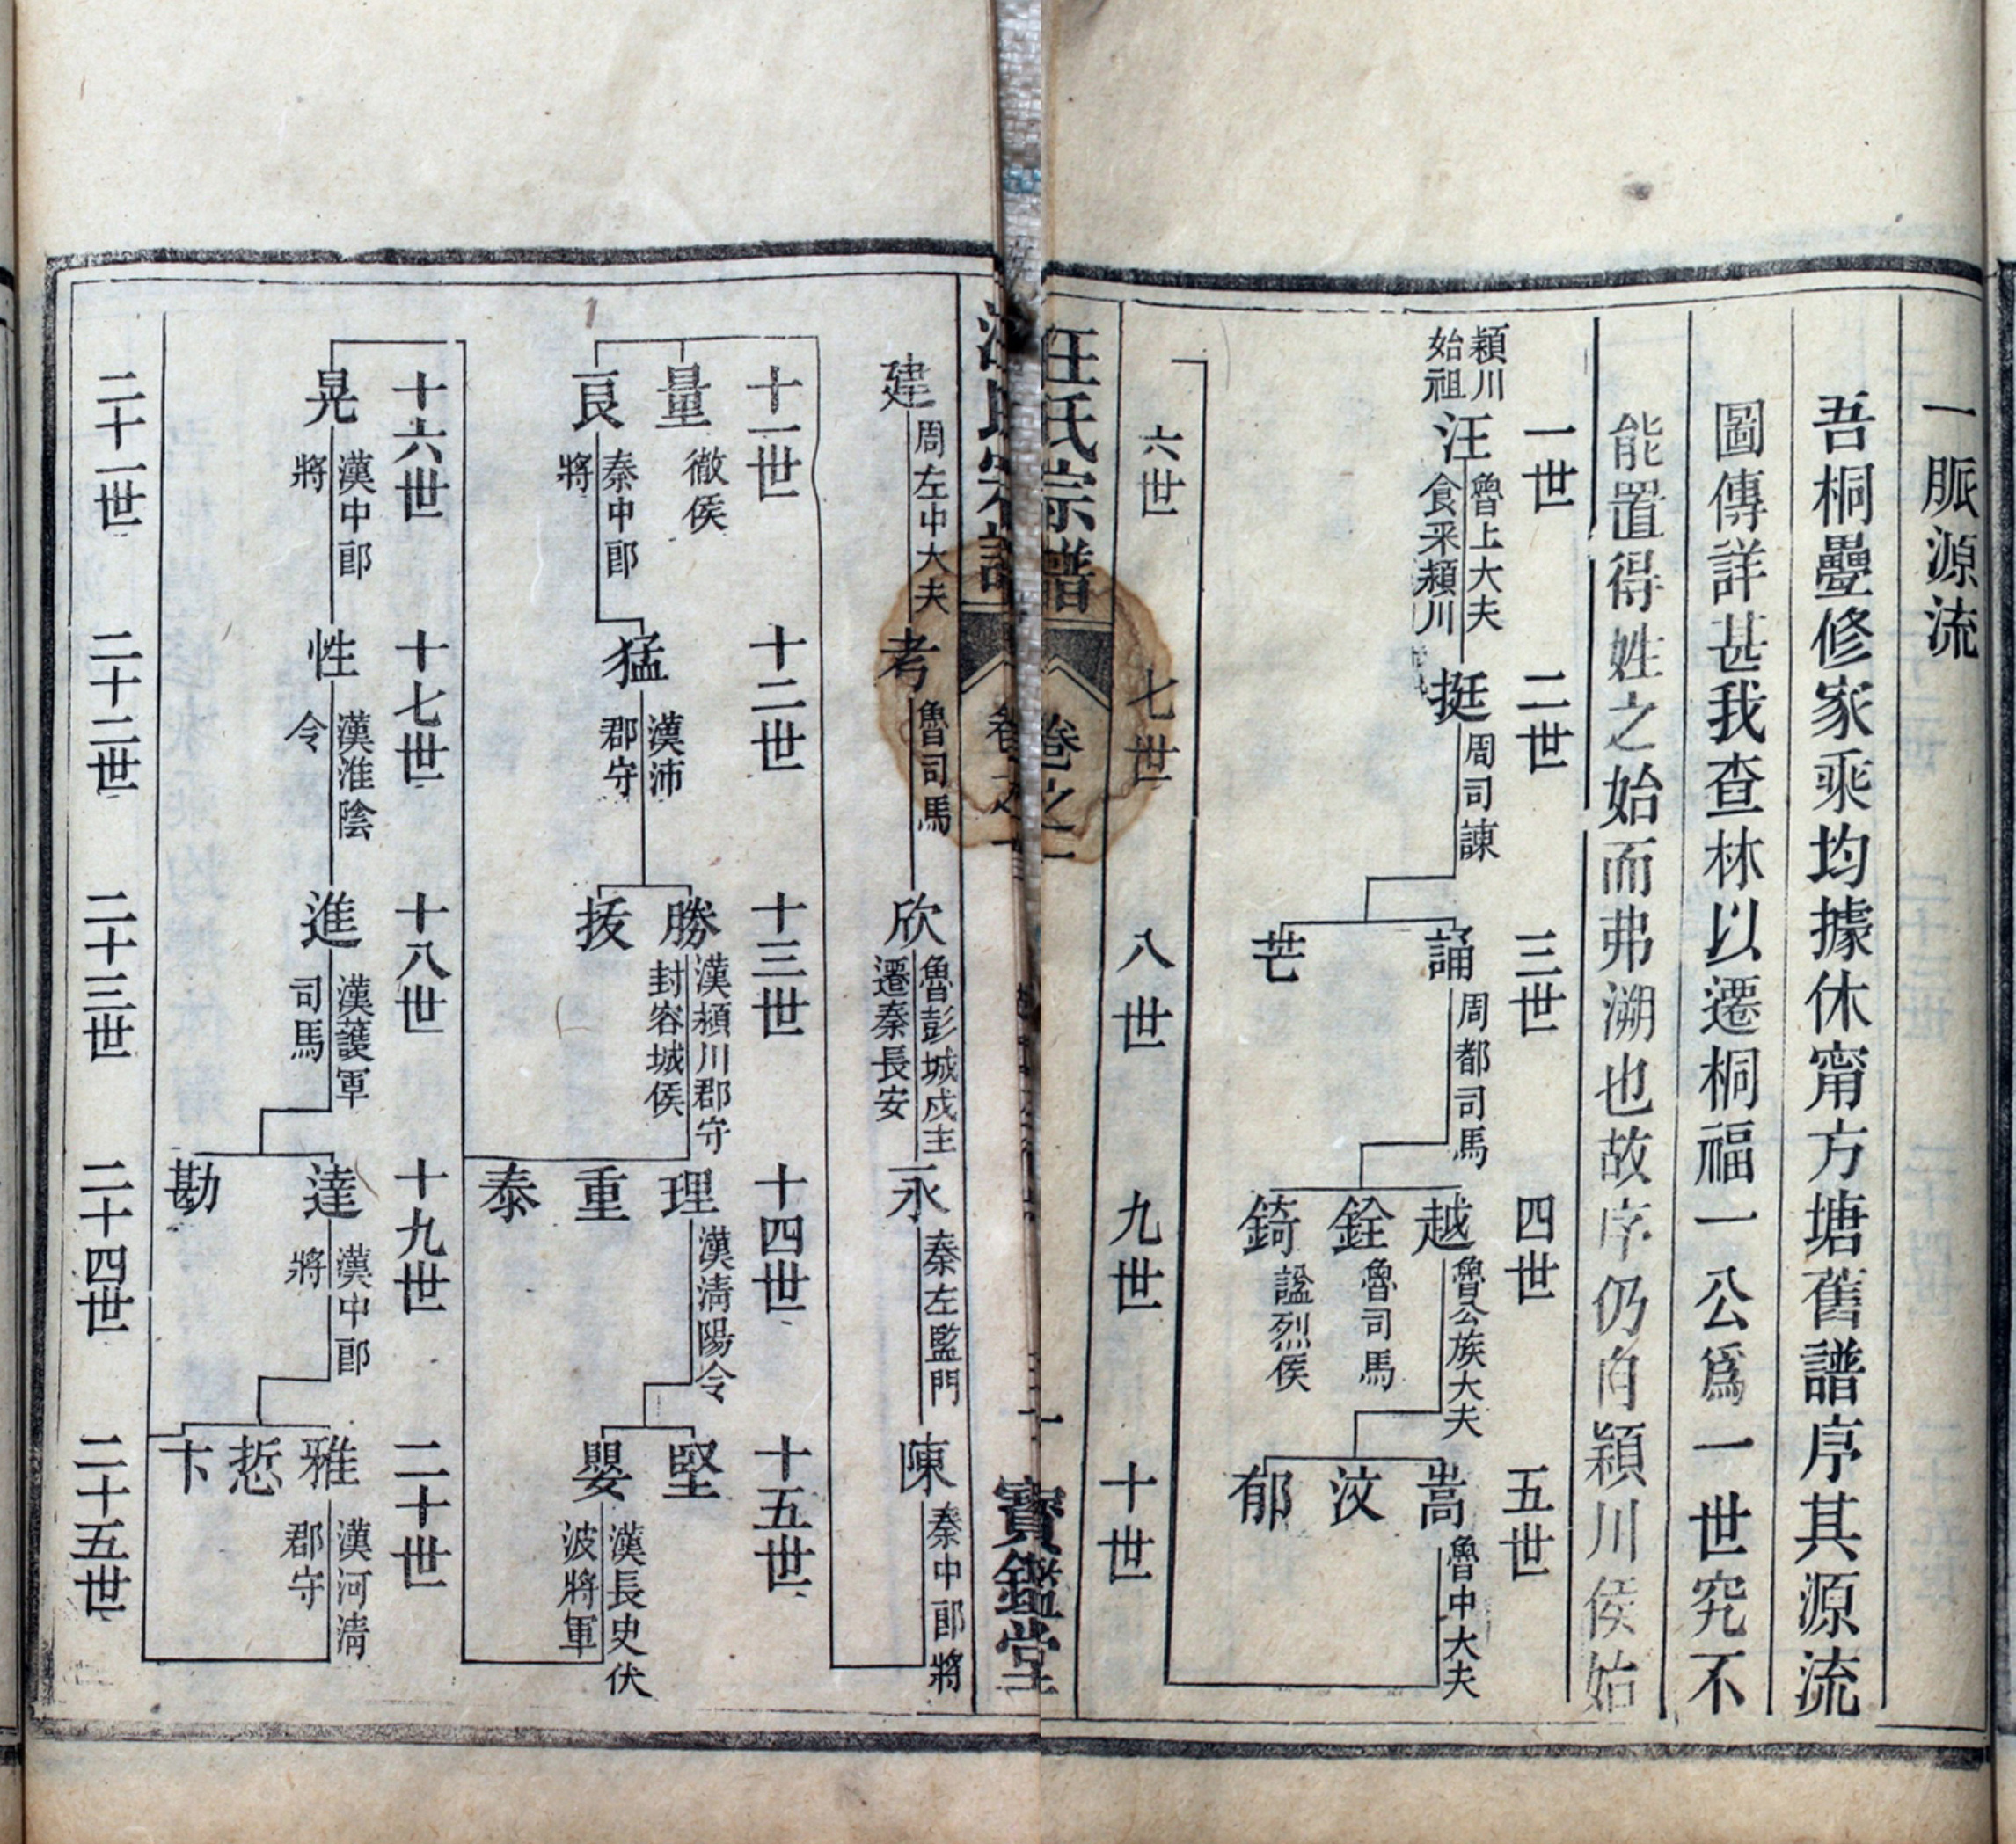 一脈源流
吾桐疊修家乘均據休甯方塘舊譜序其源流
圖傳詳甚我查林以遷桐福一公爲一世究不
能置得姓之始而弗溯也故序仍自潁川侯始
一世
二世
三世
四世
五世
潁川始祖
汪
魯上大夫
食采潁川
挺
周司諫
誦
周都司馬
芒
越
魯公族大夫
銓
魯司馬
錡
謚烈侯
嵩
魯中大夫
汶
郁
六世
七世
八世
九世
十世
汪氏宗譜
卷之一
寶鑑堂
建
周左中大夫
考
魯司馬
欣
魯彭城戍主
遷秦長安
永
秦左監門
陳
秦中郎將
十一世
十二世
十三世
十四世
十五世
量
徹侯
良
秦中郎
將
猛
漢沛
郡守
勝
漢潁川郡守
封容城侯
拔
理
漢清陽令
重
泰
堅
嬰
漢長史伏
波將軍
十六世
十七世
十八世
十九世
二十世
晃
漢中郎
將
性
漢淮陰
令
進
漢護軍
司馬
達
漢中郎
將
勘
雅
漢河清
郡守
悊
卞
二十一世
二十二世
二十三世
二十四世
二十五世